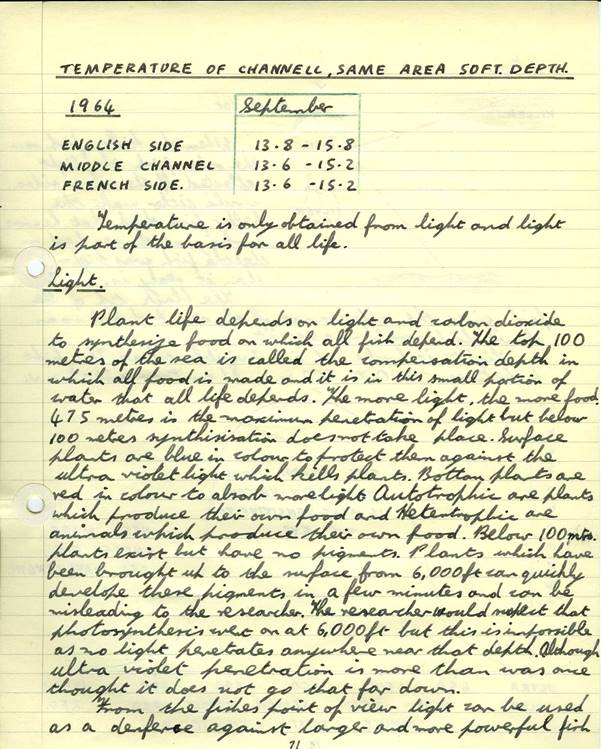 TEMPERATURE OF CHANNELL, SAME AREA 50FT. DEPTH.
1964 September
ENGLISH SIDE 13.8 - 15.8
MIDDLE CHANNEL 13.6 - 15.2
FRENCH SIDE. 13.6 - 15.2
Temperature is only obtained from light and light
is part of the basis for all life.
Light.
Plant life depends on light and carbon dioxide
to synthesize food on which all fish depend. The top 100
metres of the sea is called the compensation depth in
which all food is made and it is in this small portion of
water that all life depends. The more light, the more food.
475 metres is the maximum penetration of light but below
100 metres synthisisation does not take place. Surface
plants are blue in colour to protect them against the
ultra violet light which kills plants. Bottom plants are
red in colour to absorb more light Autotrophic are plants
which produce their own food and are
animals which produce their own food. Below 100 mts.
plants exist but have no pigments. Plants which have
been brought up to the surface from 6,000ft can quickly
develope these pigments in a few minutes and can be
misleading to the researcher. The researcher would that
photosynthesis went on at 6,000ft but this is impossible
as no light penetrates anywhere near that depth. Although
ultra violet penetration is more than was once
thought it does not go that far down.
From the fishes point of view light can be used
as a defence against larger and more powerful fish